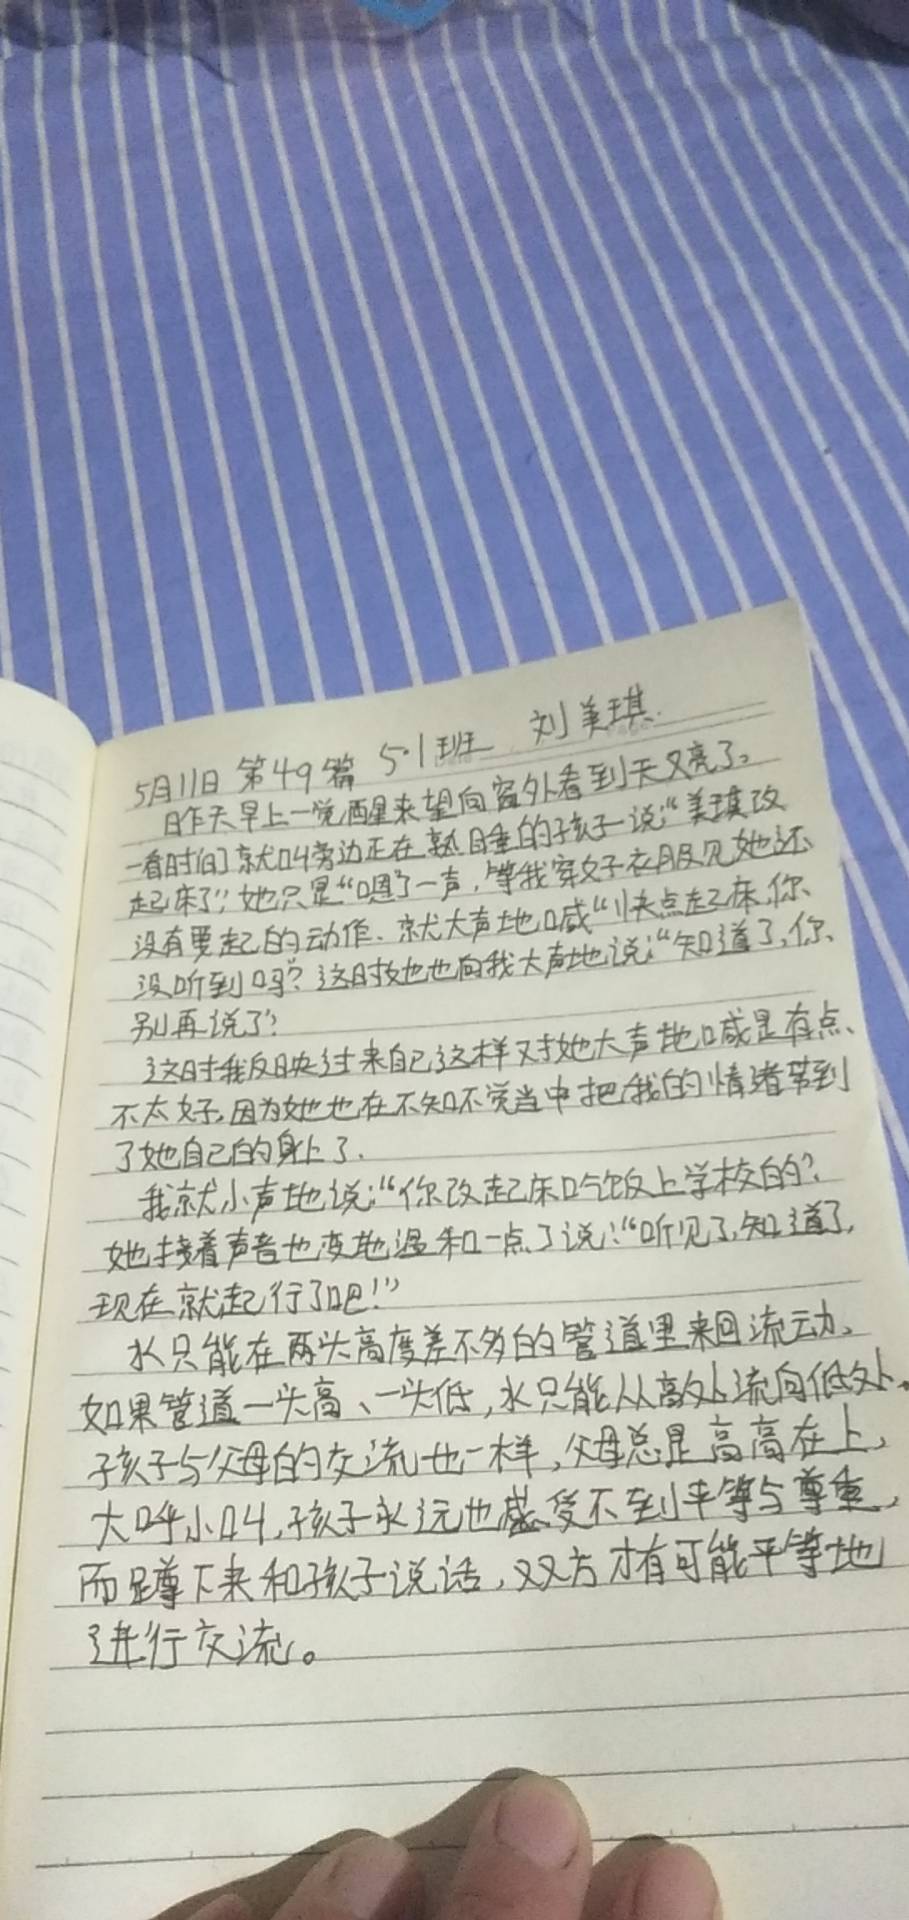 5月11日 第49篇 5·1班 刘美琪
昨天早上一觉醒来望向窗外看到天又亮了。
一看时间就叫旁边正在熟睡的孩子说“美琪改
起床了”，她只是“嗯了一声，等我穿好衣服见她还
没有要起的动作、就大声地喊“快点起床，你
没听到吗？这时她也向我大声地说：“知道了，你
别再说了”？
这时我反映过来自己这样对她大声地喊是有点
不太好，因为她也在不知不觉当中把我的情绪带到
了她自己的身上了．
我就小声地说：“你改起床吃饭上学校的”？
她接着声音也变地温和一点了说：“听见了，知道了，
现在就起行了吧！”
水只能在两头高度差不多的管道里来回流动、
如果管道一头高、一头低，水只能从高处流向低处。
孩子与父母的交流也一样，父母总是高高在上，
大呼小叫，孩子永远也感受不到平等与尊重，
而蹲下来和孩子说话，双方才有可能平等地
进行交流。